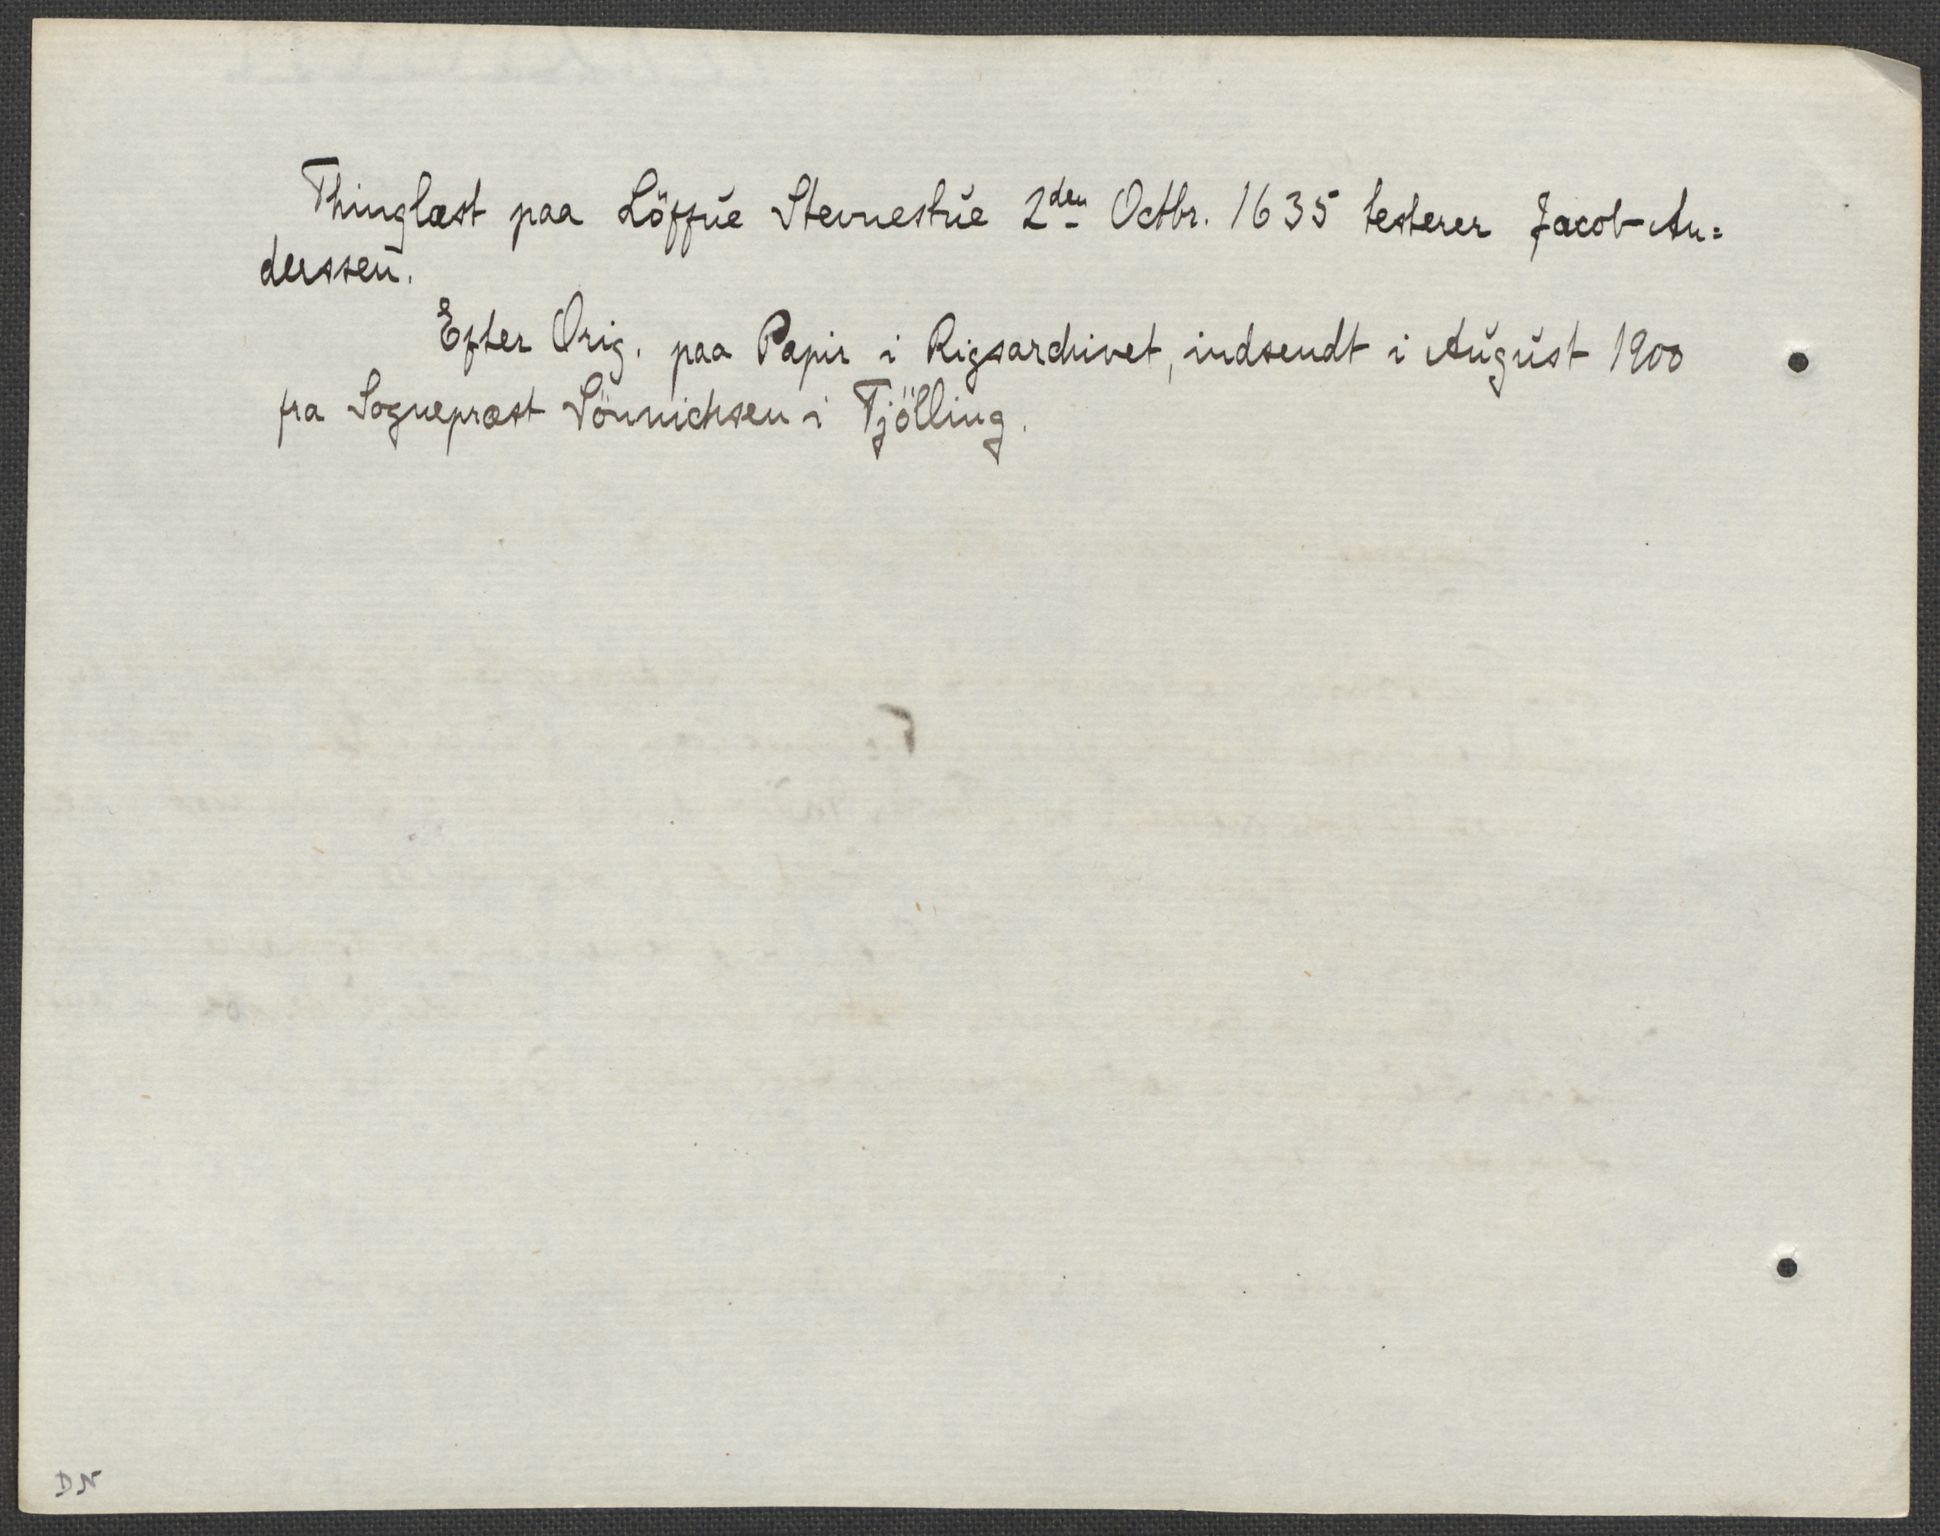 Thinglæst paa Löffue Stevnestue 2den Octbr. 1635 testerer Jacob An=
derssen.
Efter Orig. paa Papir i Rigsarchivet, indsendt i August 1900
fra Sognepræst Sönnichsen i Tjölling.
DN